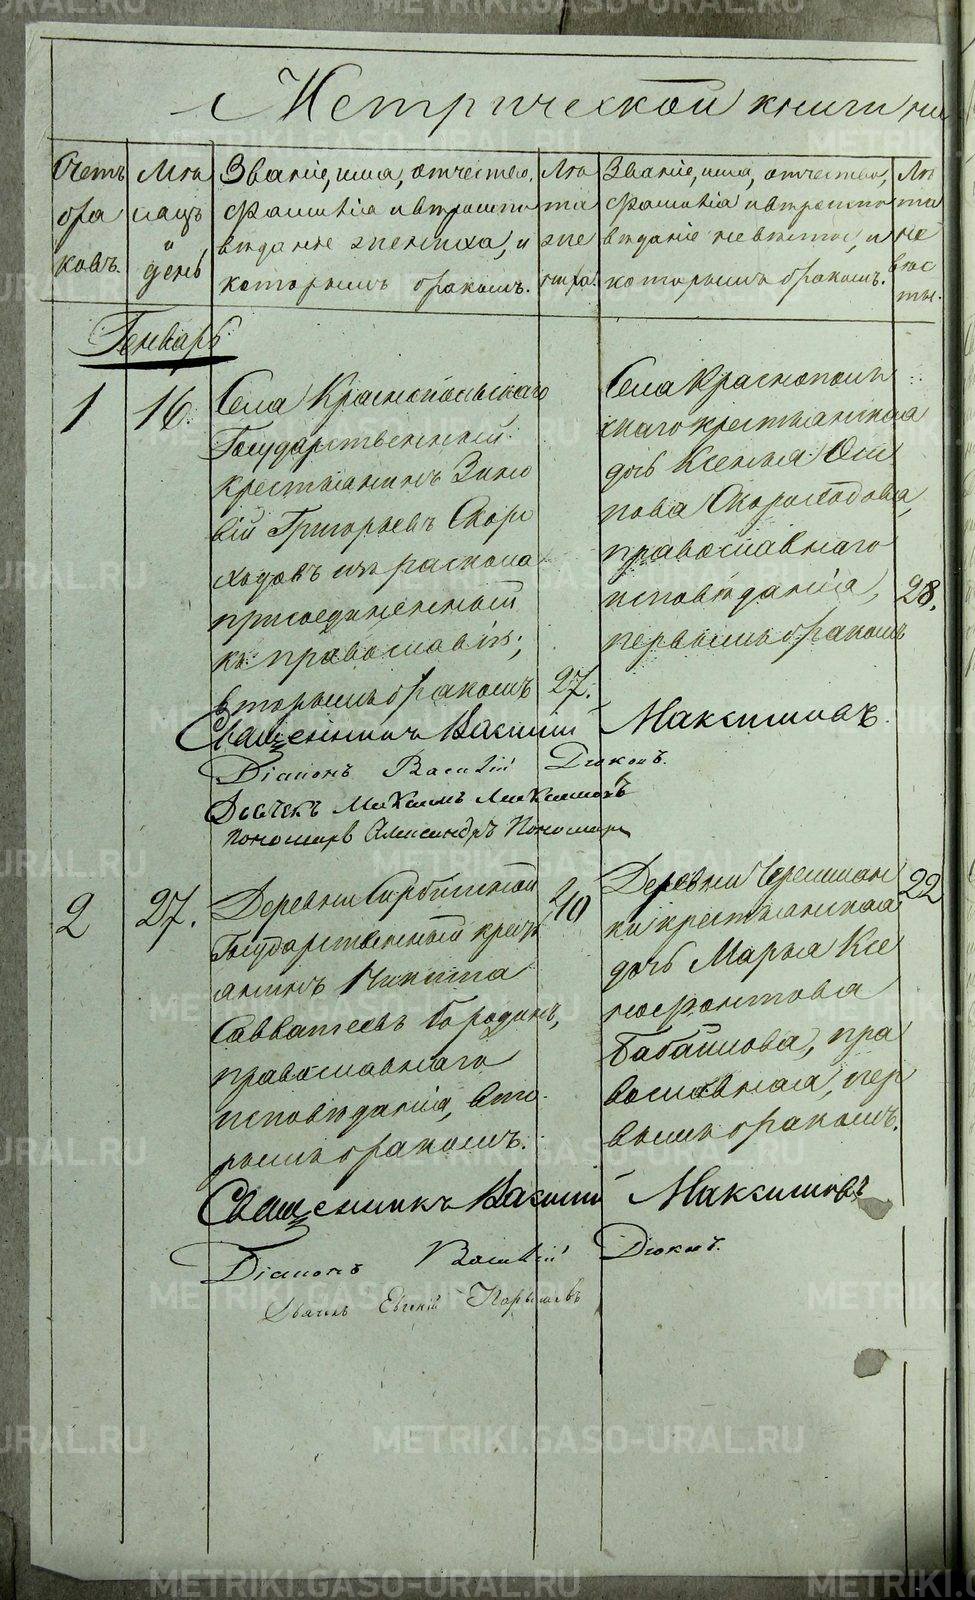 Метрической книги на
Счетъ
бра
ковъ.
Мѣ
сяцъ
и
день
Званіе, имя, отчество,
фамилія и вѣроиспо
вѣданіе жениха, и
которымъ бракомъ.
Лѣ
та
же
ниха.
Званіе, имя, отчество,
фамилія и вѣроиспо
вѣданіе невѣсты, и
которымъ бракомъ.
Лѣ
та
не
вѣс
ты.
Генварь
1
16.
Села Краснопольскаго
Государственный
крестьянинъ Зино
вій Григорьевъ Скоро
ходовъ изъ раскола
присоединенный
къ православію,
вторымъ бракомъ
27.
Села Краснополь
скаго крестьянская
дочь Ксенья Оси
пова Скороходова,
православнаго
исповѣданія,
первымъ бракомъ
28.
Священникъ Василій Максимовъ.
Діаконъ Василій Дюковъ.
Дьячекъ Максимъ
Пономарь Александръ Пономарев
2
27.
Деревни Сарбинской
Государственный кресть
янинъ Никита
Савватеевъ Бородинъ,
православнаго
исповѣданія, вто
рымъ бракомъ.
40
Деревни Черемшан
ки крестьянская
дочь Марья Ксе
нофонтова
Бабайлова, пра
вославная, пер
вымъ бракомъ.
22
Священникъ Василій Максимовъ
Діаконъ Василій Дюковъ.
Дьячекъ Евгеній
METRIKI.GASO-URAL.RU